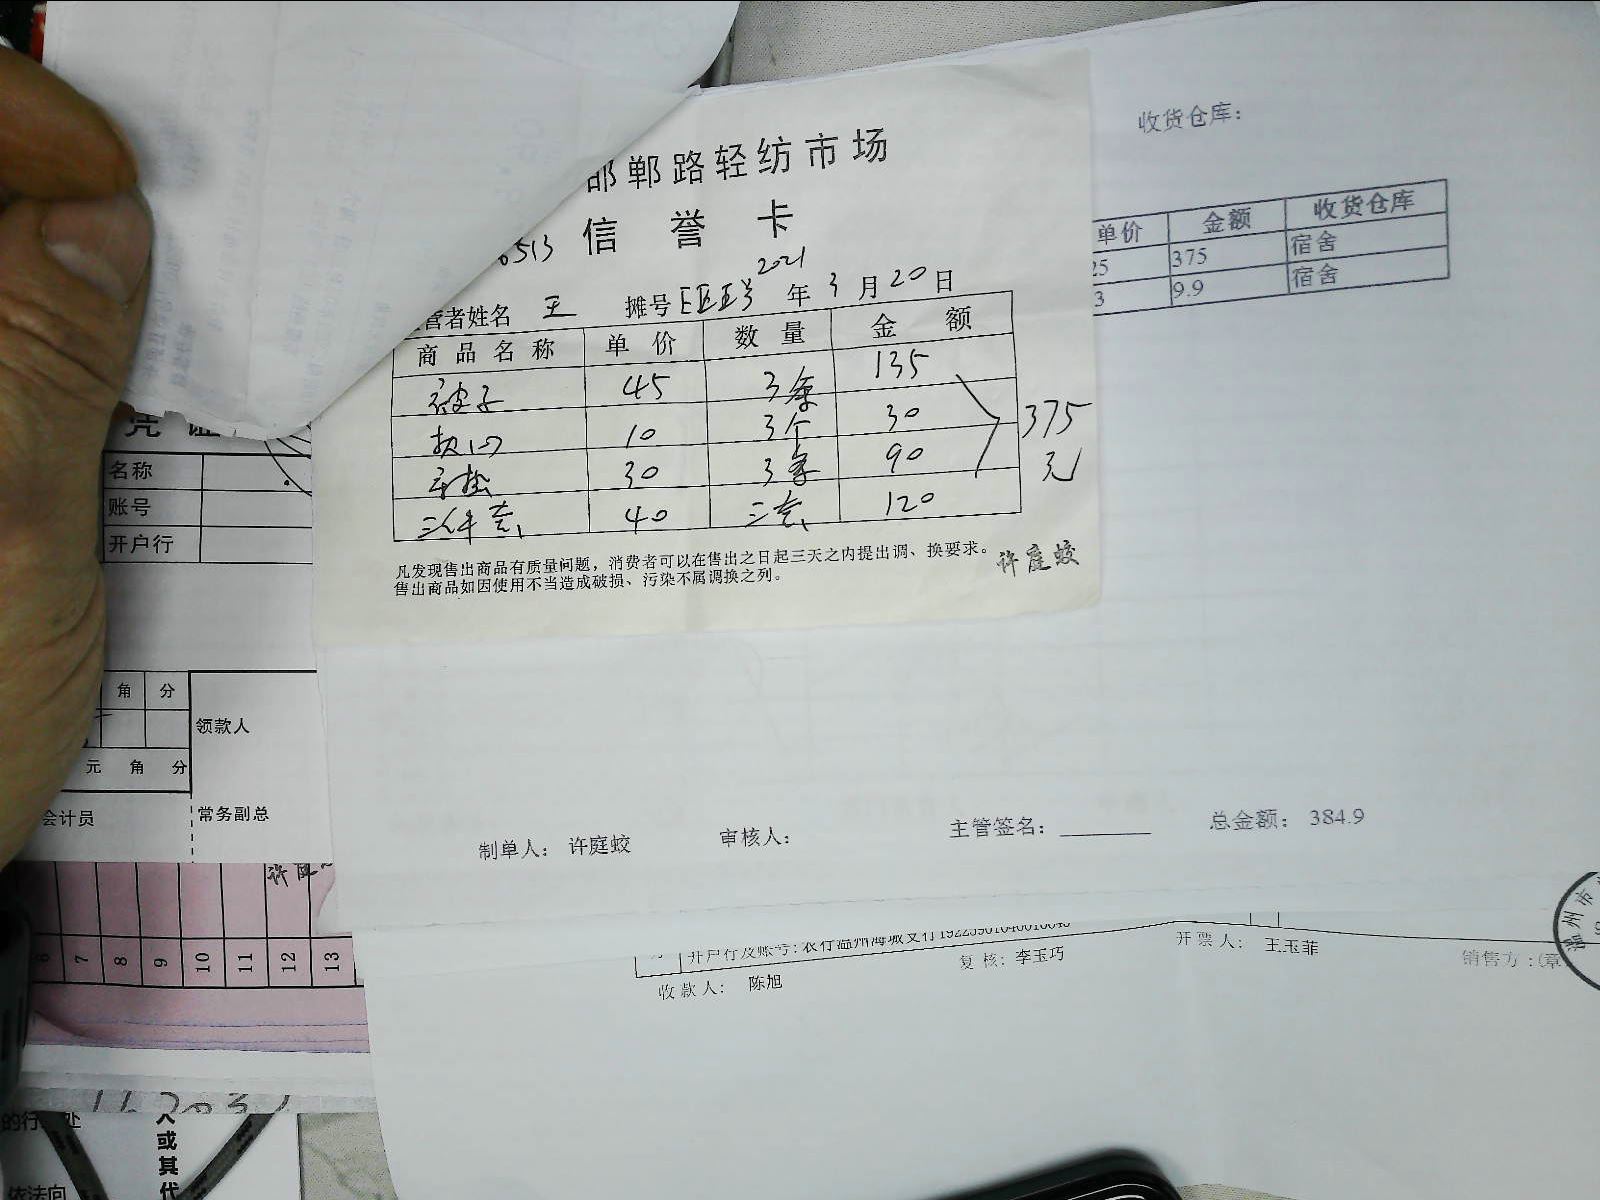 邯郸路轻纺市场
信誉卡
6513
2021
营者姓名 王 摊号 年 3 月 20 日
商品名称 单价 数量 金额
被子 45 3条 135
枕心 10 3个 30
30 3条 90
三件套 40 三套 120
375
元
凡发现售出商品有质量问题，消费者可以在售出之日起三天之内提出调、换要求。
售出商品如因使用不当造成破损、污染不属调换之列。
许庭蛟
收货仓库：
单价 金额 收货仓库
25 375 宿舍
3 9.9 宿舍
制单人： 许庭蛟 审核人： 主管签名： 总金额： 384.9
凭证
名称
账号
开户行
角 分
领款人
元 角 分
会计员 常务副总
6 7 8 9 10 11 12 13
开户行及账号：农行温州海城支行
收款人： 陈旭 复核：李玉巧 开票人： 王玉菲 销售方：(章
温州市
的行 处
人或其代
依法向